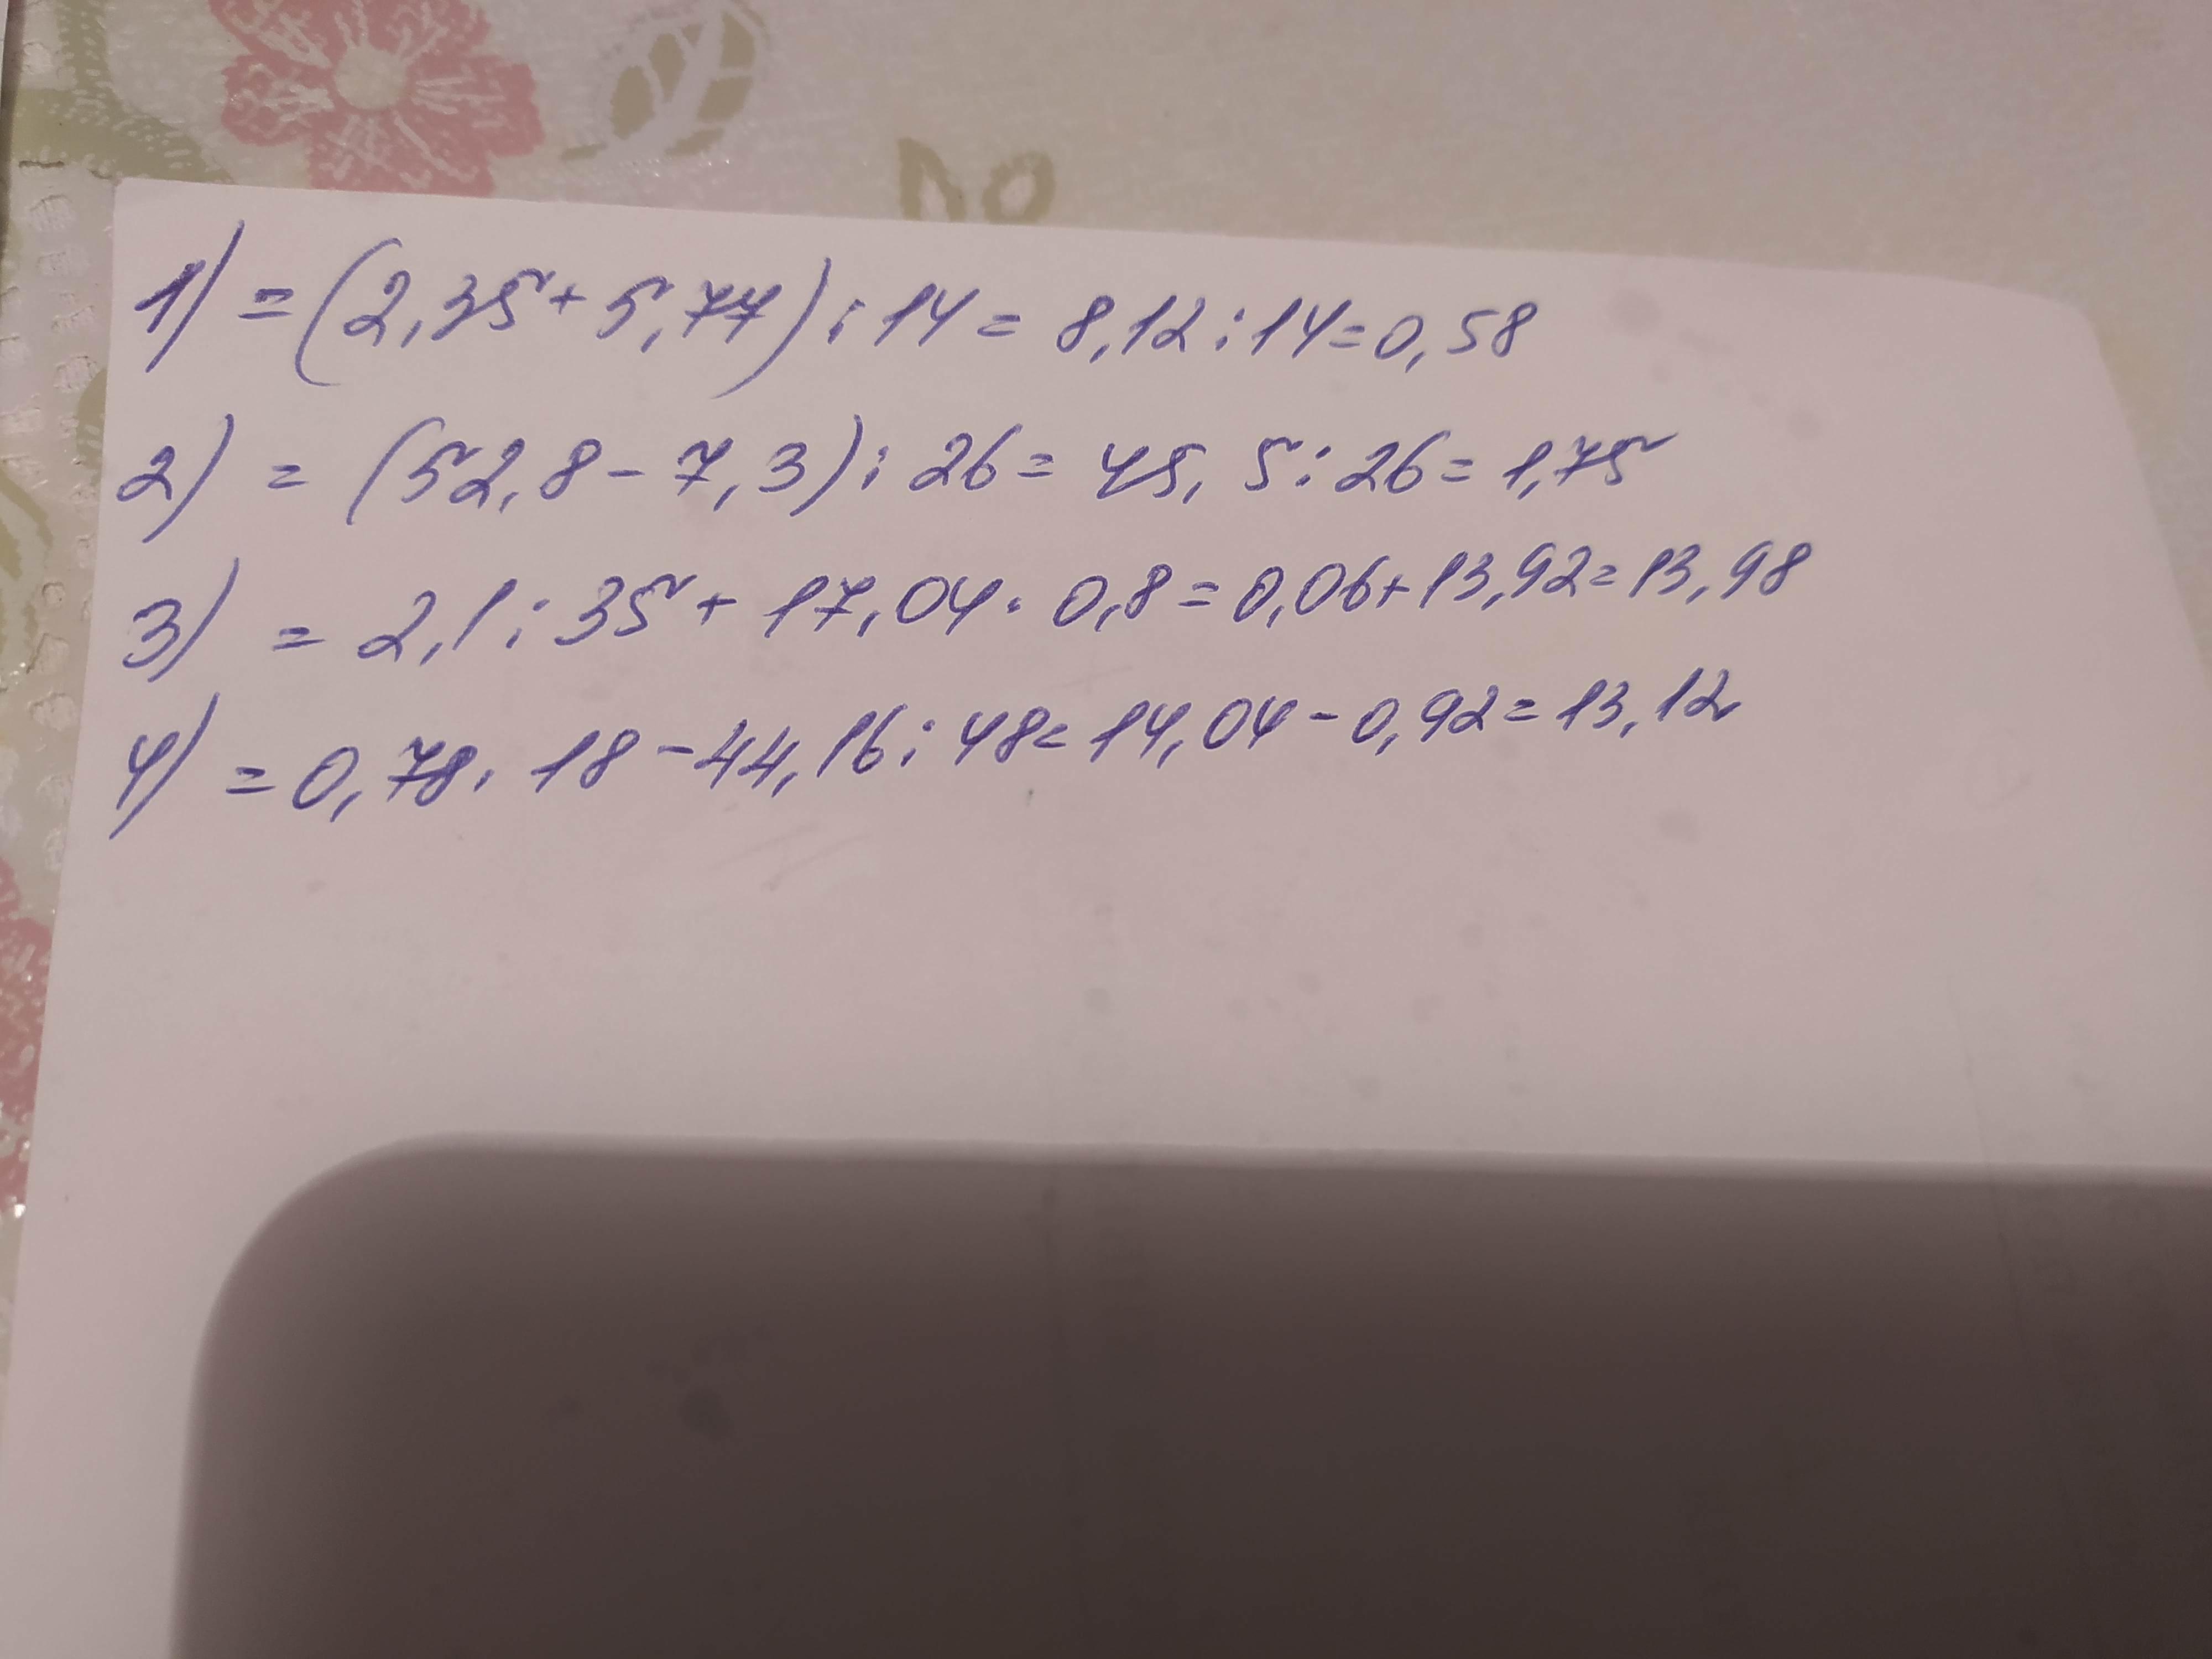 1) = (2,35 + 5,77) : 14 = 8,12 : 14 = 0,58
2) = (52,8 - 7,3) : 26 = 45,5 : 26 = 1,75
3) = 2,1 : 35 + 17,04 · 0,8 = 0,06 + 13,92 = 13,98
4) = 0,78 · 18 - 44,16 : 48 = 14,04 - 0,92 = 13,12